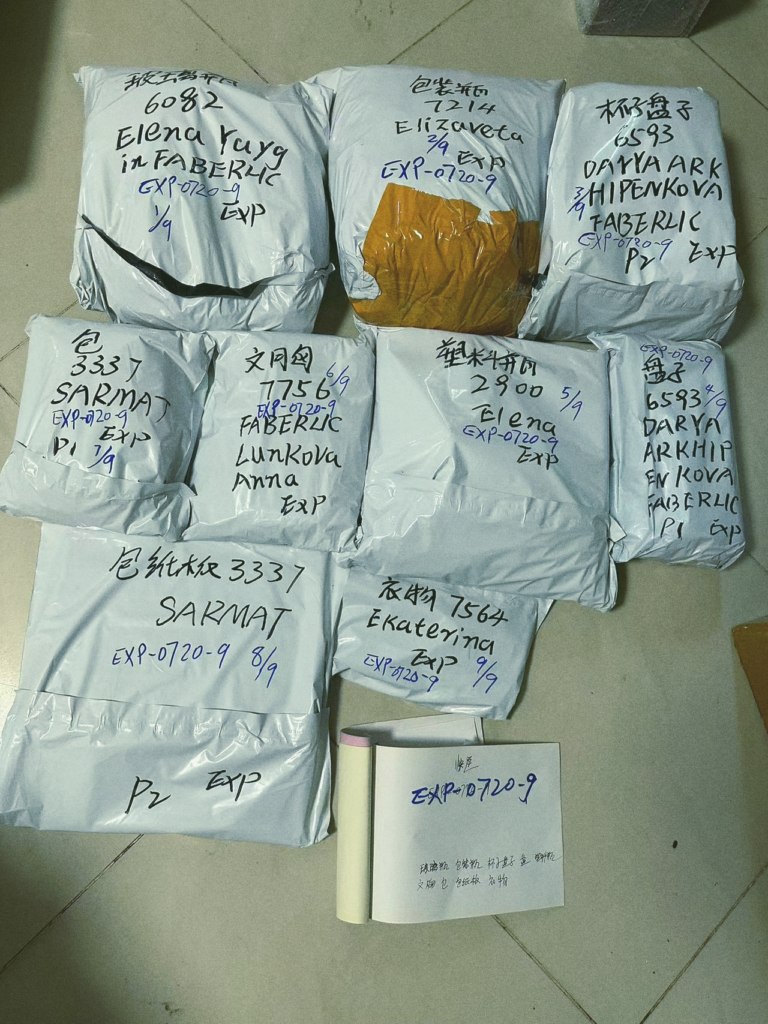 玻璃瓶
6082
Elena Yuyg
in FABERLIC
EXP-0720-9
EXP
1/9
包装瓶
7214
Elizaveta
2/9
EXP
EXP-0720-9
杯子盘子
6593
DARYA ARK
3/9
HIPENKOVA
FABERLIC
EXP-0720-9
P2 EXP
包
3337
SARMAT
EXP-0720-9
EXP
P1 7/9
文月匈
6/9
7756
EXP-0720-9
FABERLIC
Lunkova
Anna
EXP
塑料瓶
2900
5/9
Elena
EXP-0720-9
EXP
EXP-0720-9
盘子
6593 4/9
DARYA
ARKHIP
ENKOVA
FABERLIC
P1 EXP
包纸板 3337
SARMAT
EXP-0720-9 8/9
P2 EXP
衣物 7564
Ekaterina
EXP
9/9
EXP-0720-9
EXP-0720-9
玻璃瓶 包装瓶 杯子盘子 盘 塑料瓶
文胸 包 包纸板 衣物